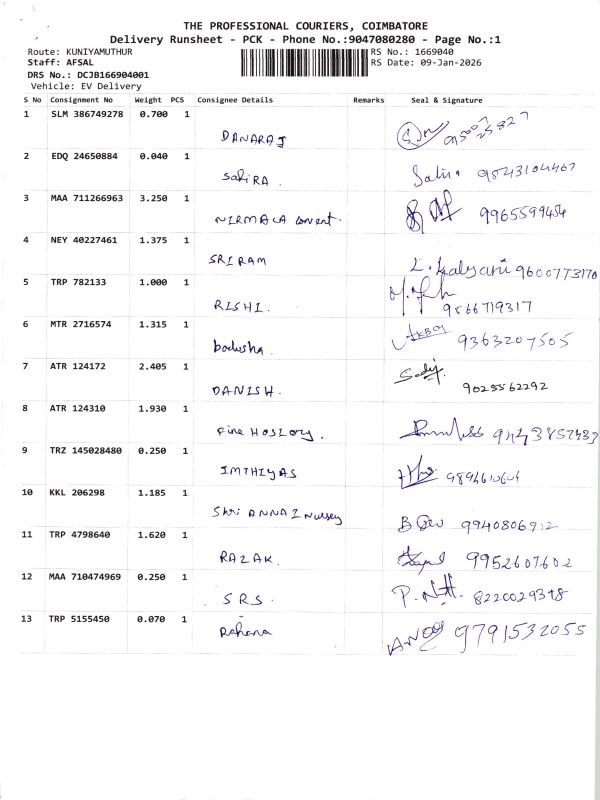 THE PROFESSIONAL COURIERS, COIMBATORE
Delivery Runsheet - PCK - Phone No.:9047080280 - Page No.:1
Route: KUNIYAMUTHUR
RS No.: 1669040
Staff: AFSAL
RS Date: 09-Jan-2026
DRS No.: DCJB166904001
Vehicle: EV Delivery
S No Consignment No Weight PCS Consignee Details Remarks Seal & Signature
1 SLM 386749278 0.700 1
DANARAJ
2 EDQ 24650884 0.040 1
SaRiRA. 9843104467
3 MAA 711266963 3.250 1
NIRMALA convent. 9965599454
4 NEY 40227461 1.375 1
SRIRAM L. Kalyani 9600773170
5 TRP 782133 1.000 1
RISHI. 9566719317
6 MTR 2716574 1.315 1
badusha 9363207505
7 ATR 124172 2.405 1
DANISH. 9025562292
8 ATR 124310 1.930 1
Fine Hoslory.
9 TRZ 145028480 0.250 1
IMTHIYAS
10 KKL 206298 1.185 1
Shri ANNAI Nursey 9940806912
11 TRP 4798640 1.620 1
RAZAK. 9952607602
12 MAA 710474969 0.250 1
SRS. 8220029348
13 TRP 5155450 0.070 1
Rahana 9791532055